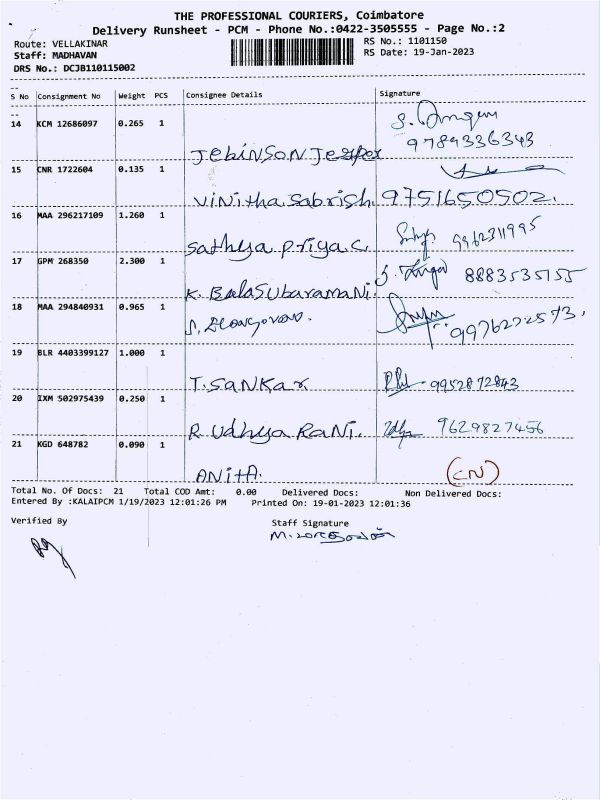 THE PROFESSIONAL COURIERS, Coimbatore
Delivery Runsheet - PCM - Phone No.:0422-3505555 - Page No.:2
Route: VELLAKINAR RS No.: 1101150
Staff: MADHAVAN RS Date: 19-Jan-2023
DRS No.: DCJB110115002
S No Consignment No Weight PCS Consignee Details Signature
14 KCM 12686097 0.265 1
9789336343
Jebinson Jesper
15 CNR 1722604 0.135 1
Vinitha Sabrish. 9751650502.
16 MAA 296217109 1.260 1
9962311995
Sathya Priya.C
17 GPM 268350 2.300 1
8883535155
K. BalaSubaramani.
18 MAA 294840931 0.965 1
S. Elangovan.
9976272573.
19 BLR 4403399127 1.000 1
T. Sankar 9952872843
20 IXM 502975439 0.250 1
R Udhya Rani. 9629827456
21 KGD 648782 0.090 1
Anita. (CN)
Total No. Of Docs: 21 Total COD Amt: 0.00 Delivered Docs: Non Delivered Docs:
Entered By :KALAIPCM 1/19/2023 12:01:26 PM Printed On: 19-01-2023 12:01:36
Verified By Staff Signature